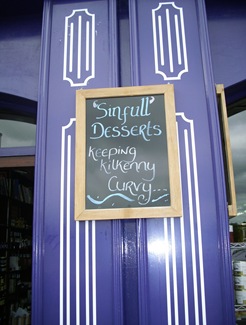 'Sinfull'
DESSERTS
Keeping
Kilkenny
Curvy...